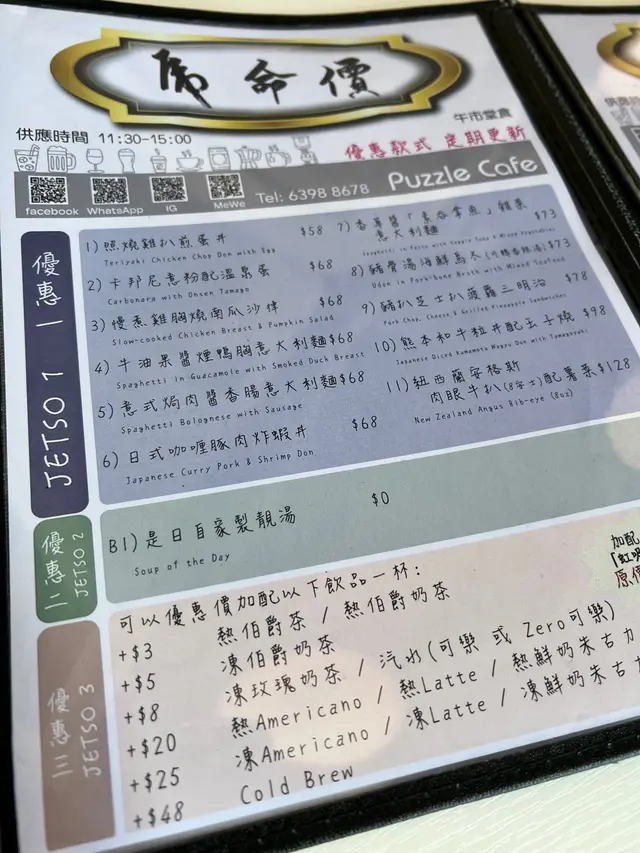 席命價
午市堂食
供應時間 11:30-15:00
優惠款式 定期更新
facebook WhatsApp IG MeWe Tel: 6398 8678 Puzzle Cafe
優惠一 JETSO 1
1) 照燒雞扒煎蛋丼 $58
Teriyaki Chicken Chop Don with Egg
2) 卡邦尼意粉配溫泉蛋 $68
Carbonara with Onsen Tamago
3) 慢煮雞胸燒南瓜沙律 $68
Slow-cooked Chicken Breast & Pumpkin Salad
4) 牛油果醬煙鴨胸意大利麵 $68
Spaghetti in Guacamole with Smoked Duck Breast
5) 意式焗肉醬香腸意大利麵 $68
Spaghetti Bolognese with Sausage
6) 日式咖喱豚肉炸蝦丼 $68
Japanese Curry Pork & Shrimp Don
7) 香草醬「素吞拿魚」雜菜
意大利麵 $73
Spaghetti in Pesto with Veggie Tuna & Mixed Vegetables
8) 豬骨湯海鮮烏冬 $73
Udon in Porkribone Broth with Mixed Seafood
9) 豬扒芝士扒菠蘿三明治 $78
Pork Chop, Cheese & Grilled Pineapple Sandwiches
10) 熊本和牛粒丼配玉子燒 $98
Japanese Diced Kumamoto Wagyu Don with Tamagoyaki
11) 紐西蘭安格斯
肉眼牛扒(8安士)配薯菜 $128
New Zealand Angus Rib-eye (8oz)
優惠二 JETSO 2
B1) 是日自家製靚湯 $0
Soup of the Day
加配
原價
優惠三 JETSO 3
可以優惠價加配以下飲品一杯:
+$3 熱伯爵茶 / 熱伯爵奶茶
+$5 凍伯爵奶茶
+$8 凍玫瑰奶茶 / 汽水(可樂 或 Zero可樂)
+$20 熱Americano / 熱Latte / 熱鮮奶朱古力
+$25 凍Americano / 凍Latte / 凍鮮奶朱古力
+$48 Cold Brew